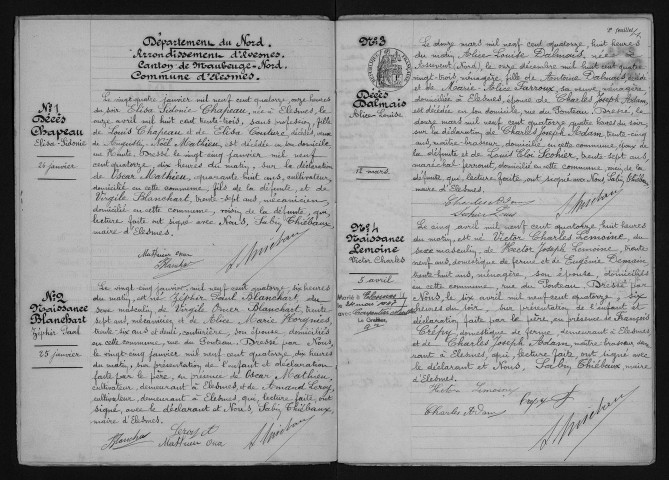 Département du Nord.
Arrondissement d'Avesnes.
Canton de Maubeuge-Nord.
Commune d'Elesmes.
N°1
Décès
Chapeau
Elisa-Sidonie
24 janvier
Le vingt quatre janvier mil neuf cent quatorze, onze heures
du soir, Elisa Sidonie Chapeau, née à Elesmes, le
onze avril mil huit cent trente-trois, sans profession, fille
de Louis Chapeau et de Elisa Couture, décédés, veuve
de Auguste, Noël Mathieu, est décédée en son domicile
Dressé le vingt cinq janvier mil neuf
cent quatorze, dix heures du matin, sur la déclaration
de Oscar Mathieu, quarante huit ans, cultivateur,
domicilié en cette commune, fils de la défunte, et de
Virgile Blanchart, trente-sept ans, mécanicien,
domicilié en cette commune, voisin de la défunte, qui,
lecture faite ont signé avec Nous, Sabin Thiébaux,
maire d'Elesmes.
Mathieu Oscar
Blanchart
N°2
Naissance
Blanchart
Zéphir Paul
25 janvier
Le vingt cinq janvier, mil neuf cent quatorze, six heures
du matin, est né Zéphir Paul Blanchart, du
sexe masculin, de Virgile Omer Blanchart, trente
sept ans, mécanicien, et de Alice Marie
trente six ans et demi, couturière, son épouse, domiciliés
en cette commune, rue du Ponteau. Dressé par Nous,
le vingt cinq janvier mil neuf cent quatorze, dix heures
du matin, sur présentation de l'enfant et déclaration
faite par le père, en présence de Oscar Mathieu,
cultivateur, demeurant à Elesmes, et de Amand Leroy,
cultivateur, demeurant à Elesmes, qui, lecture faite, ont
signé, avec le déclarant et Nous, Sabin Thiébaux,
maire d'Elesmes.
Blanchart
Leroy A
Mathieu Oscar
N°3
Décès
Dalmais
Alice-Louise
12 mars
Le douze mars mil neuf cent quatorze, huit heures
du matin, Alice-Louise Dalmais, née à
(Nord), le onze décembre mil huit cent quatre
vingt-trois, ménagère, fille de Antoine Dalmais, décédé
et de Marie-Alice Sarroux, sa veuve, ménagère,
domiciliée à Elesmes, épouse de Charles Joseph Adam,
est décédée en son domicile, rue du Ponteau. Dressé, le
douze mars mil neuf cent quatorze, quatre heures du soir,
sur la déclaration de Charles Joseph Adam, trente-cinq
ans, maître-brasseur, domicilié en cette commune, époux de
la défunte et de Louis Eloi trente-sept ans,
maréchal-ferrant, domicilié en cette commune, ami de
la défunte, qui, lecture faite, ont signé avec Nous, Sabin Thiébaux,
maire d'Elesmes.
Charles Adam
N°4
Naissance
Lemoine
Victor Charles
5 avril
Le cinq avril mil neuf cent quatorze, huit heures
du matin, est né Victor Charles Lemoine, du
sexe masculin, de Hector Joseph Lemoine, trente
neuf ans, domestique de ferme, et de Eugénie Demain,
trente huit ans, ménagère, son épouse, domiciliés
en cette commune, rue du Ponteau. Dressé par
Nous, le six avril mil neuf cent quatorze, six
heures du soir, sur présentation de l'enfant et
déclaration faite par le père, en présence de François
Crépy, domestique de ferme, demeurant à Elesmes
et de Charles Joseph Adam, maître-brasseur, demeurant
à Elesmes, qui, lecture faite ont signé avec
le déclarant et Nous, Sabin Thiébaux, maire
d'Elesmes.
Hector Lemoine
Charles Adam